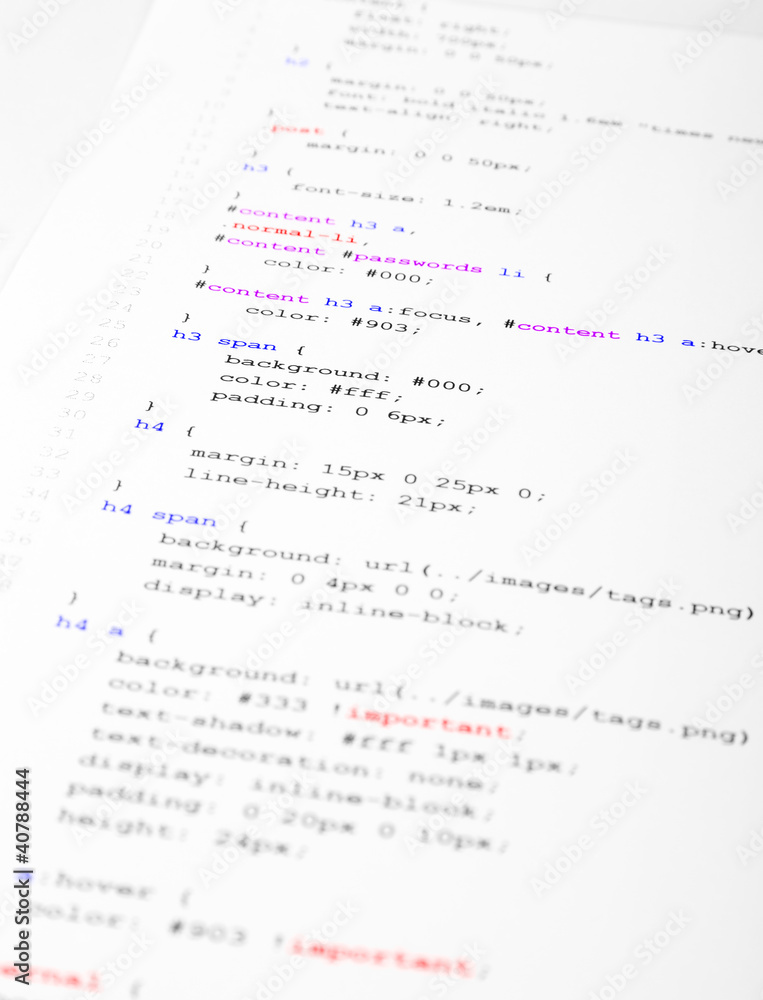 float: right;
width: 700px;
margin: 0 0 50px;
}
h2 {
margin: 0 0 50px;
font: bold italic 1.6em "times new
text-align: right;
}
post {
margin: 0 0 50px;
}
h3 {
font-size: 1.2em;
}
#content h3 a,
.normal-li,
#content #passwords li {
color: #000;
}
#content h3 a:focus, #content h3 a:hove
color: #903;
}
h3 span {
background: #000;
color: #fff;
padding: 0 6px;
}
h4 {
margin: 15px 0 25px 0;
line-height: 21px;
}
h4 span {
background: url(../images/tags.png)
margin: 0 4px 0 0;
display: inline-block;
}
h4 a {
background: url(../images/tags.png)
color: #333 !important;
text-shadow: #fff 1px 1px;
text-decoration: none;
display: inline-block;
padding: 0 20px 0 10px;
height: 24px;
:hover {
color: #903 !important;
ernal {
Adobe Stock | #40788444